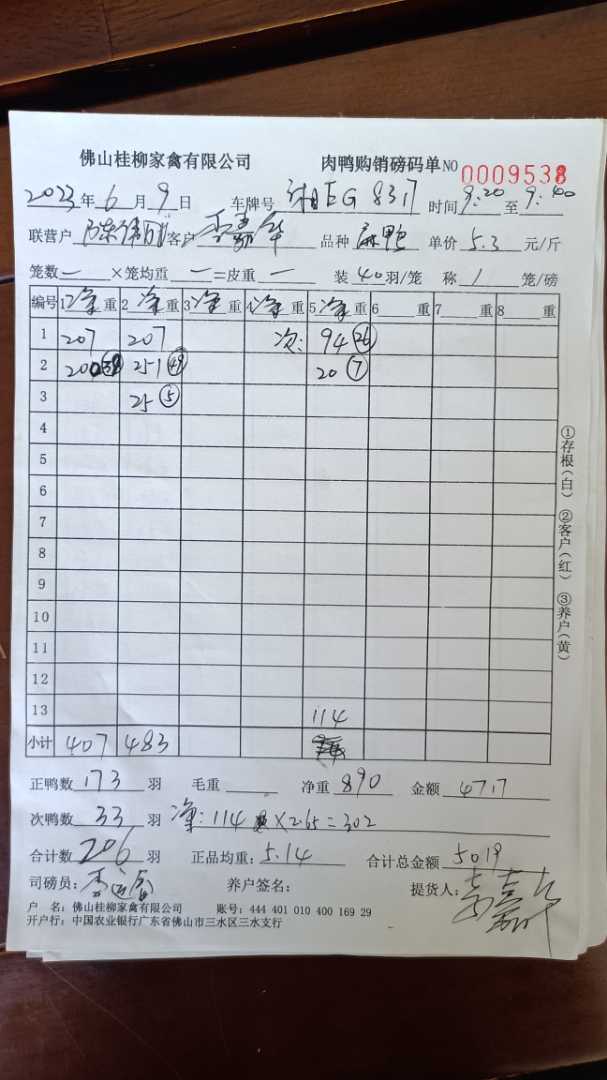 佛山桂柳家禽有限公司 肉鸭购销磅码单 NO 0009538
2023年 6 月 9 日 车牌号 湘EG 8317 时间 9:20 至 9:40
联营户 客户 李嘉华 品种 麻鸭 单价 5.3 元/斤
笼数 — ×笼均重 — =皮重 — 装 40 羽/笼 称 1 笼/磅
编号 1 净 重 2 净 重 3 净 重 4 净 重 5 净 重 6 重 7 重 8 重
1 207 207 次: 94 (26)
2 200 251 (49) 20 (7)
3 25 (5)
4
5
6
7
8
9
10
11
12
13 114
小计 407 483
正鸭数 173 羽 毛重 净重 890 金额 4717
次鸭数 33 羽 净:114 ×2.65=302
合计数 206 羽 正品均重:5.14 合计总金额 5019
司磅员: 养户签名: 提货人:
户 名:佛山桂柳家禽有限公司 账号:444 401 010 400 169 29
开户行:中国农业银行广东省佛山市三水区三水支行
①存根(白) ②客户(红) ③养户(黄)